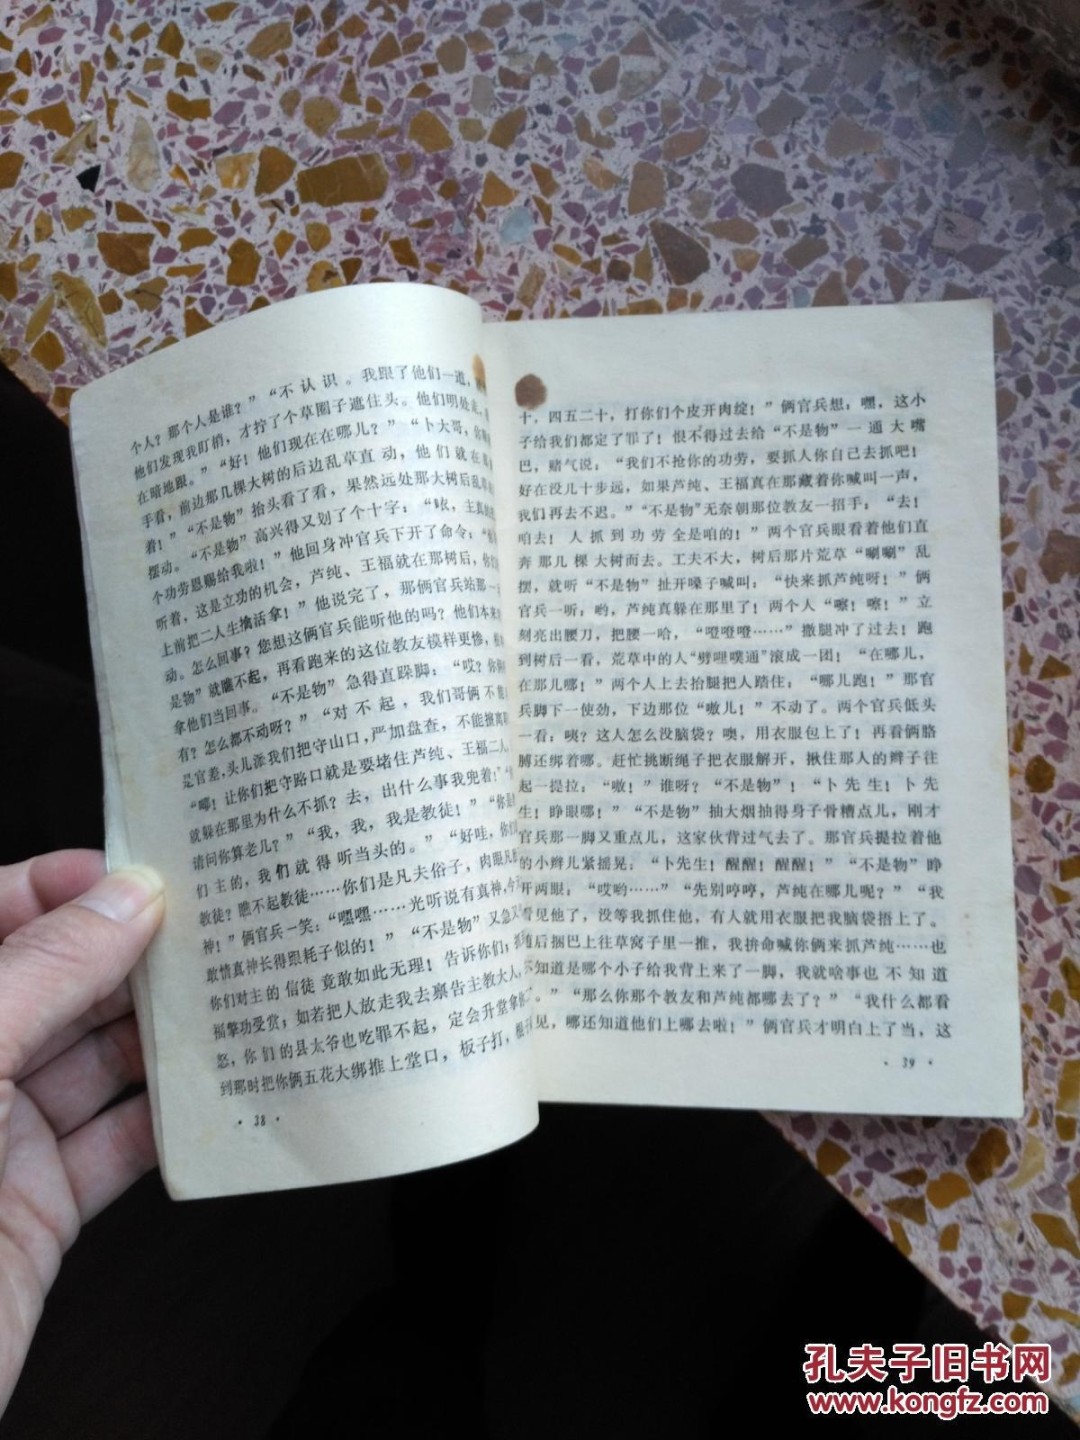 个人？那个人是谁？”“不认识。我跟了他们一道，
他们发现我盯梢，才拧了个草圈子遮住头。他们明处走，
在暗地跟。”“好！他们现在在哪儿？”“卜大哥，你
手看，前边那几棵大树的后边乱草直动，他们就在那
着！”“不是物”抬头看了看，果然远处那大树后乱草
摆动。
“不是物”高兴得又划了个十字：“㕵，主真
个功劳恩赐给我啦！”他回身冲官兵下开了命令：“
听着，这是立功的机会，芦纯、王福就在那树后，你
上前把二人生擒活拿！”他说完了，那俩官兵站那一
动。怎么回事？您想这俩官兵能听他的吗？他们本来
是物”就瞧不起，再看跑来的这位教友模样更惨，
拿他们当回事。“不是物”急得直跺脚：“哎？你
有？怎么都不动呀？”“对不起，我们哥俩不
是官差，头儿派我们把守山口，严加盘查，不能擅离
“嘟！让你们把守路口就是要堵住芦纯、王福二人
就躲在那里为什么不抓？去，出什么事我兜着！”
请问你算老几？”“我，我，我是教徒！”“你是
们主的，我们就得听当头的。”“好哇，你
教徒？瞧不起教徒……你们是凡夫俗子，肉眼凡
神！”俩官兵一笑：“嘿嘿……光听说有真神，今
敢情真神长得跟耗子似的！”“不是物”又急又
你们对主的信徒竟敢如此无理！告诉你们：抓
福擎功受赏；如若把人放走我去禀告主教大人，
怒，你们的县太爷也吃罪不起，定会升堂拿你
到那时把你俩五花大绑推上堂口，板子打，棍子
· 38 ·
十，四五二十，打你们个皮开肉绽！”俩官兵想：嘿，这小
子给我们都定了罪了！恨不得过去给“不是物”一通大嘴
巴，赌气说：“我们不抢你的功劳，要抓人你自己去抓吧！
好在没几十步远，如果芦纯、王福真在那藏着你喊叫一声，
我们再去不迟。”“不是物”无奈朝那位教友一招手：“去！
咱去！人抓到功劳全是咱的！”两个官兵眼看着他们直
奔那几棵大树而去。工夫不大，树后那片荒草“唰唰”乱
摆，就听“不是物”扯开嗓子喊叫：“快来抓芦纯呀！”俩
官兵一听：哟，芦纯真躲在那里了！两个人“嚓！嚓！”立
刻亮出腰刀，把腰一哈，“噔噔噔……”撒腿冲了过去！跑
到树后一看，荒草中的人“劈哩噗通”滚成一团！“在哪儿，
在那儿哪！”两个人上去抬腿把人踏住，“哪儿跑！”那官
兵脚下一使劲，下边那位“嗷儿！”不动了。两个官兵低头
一看：咦？这人怎么没脑袋？噢，用衣服包上了！再看俩胳
膊还绑着哪。赶忙挑断绳子把衣服解开，揪住那人的辫子往
起一提拉：“嗷！”谁呀？“不是物”！“卜先生！卜先
生！睁眼哪！”“不是物”抽大烟抽得身子骨糟点儿，刚才
官兵那一脚又重点儿，这家伙背过气去了。那官兵提拉着他
的小辫儿紧摇晃：“卜先生！醒醒！醒醒！”“不是物”睁
开两眼：“哎哟……”“先别哼哼，芦纯在哪儿呢？”“我
看见他了，没等我抓住他，有人就用衣服把我脑袋捂上了。
随后捆巴上往草窝子里一推，我拚命喊你俩来抓芦纯……也
不知道是哪个小子给我背上来了一脚，我就啥事也不知道
。”“那么你那个教友和芦纯都哪去了？”“我什么都看
见，哪还知道他们上哪去啦！”俩官兵才明白上了当，这
· 39 ·
孔夫子旧书网
www.kongfz.com